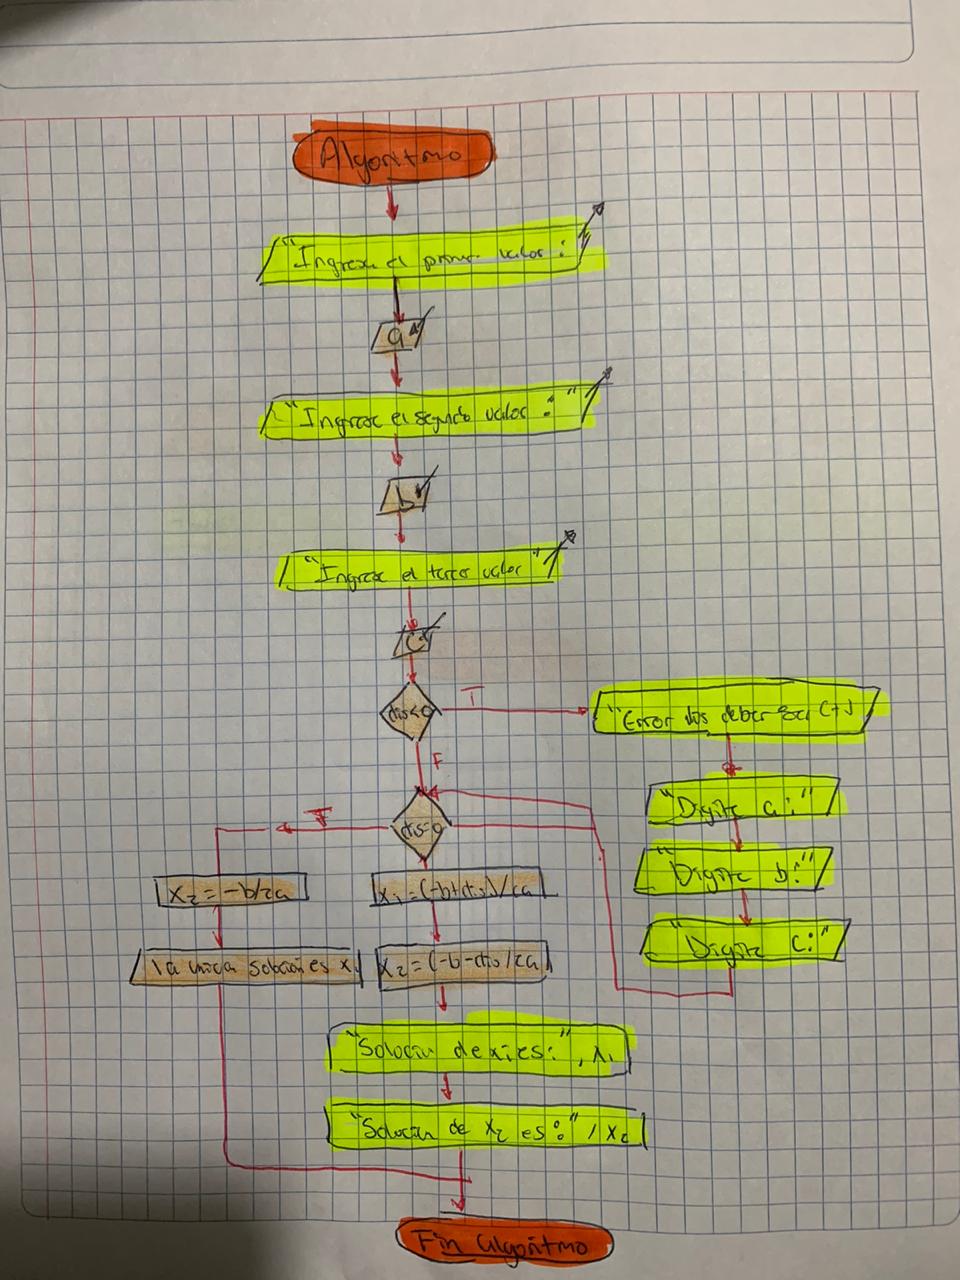 Algoritmo
"Ingrese el primer valor:
a
"Ingrese el segundo valor:"
b
"Ingrese el tercer valor"
C
dis<0
T
"Error dis deber ser (+)
F
"Digite a:"
dis=0
"Digite b:"
x2=-b/2a
x1=(-b+dis)/2a
"Digite c:"
la unica solucion es x
x2=(-b-dis/2a)
"Solucion de x1 es:", x1
"Solucion de x2 es:", x2
Fin algoritmo